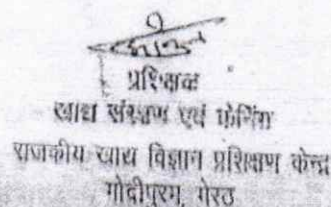 प्रशिक्षक
खाद्य संरक्षण एवं प्रोसेसिंग
राजकीय खाद्य विज्ञान प्रशिक्षण केन्द्र
मोदीपुरम, मेरठ